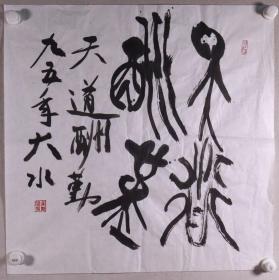 天道酬勤
天道酬勤
九五年大水